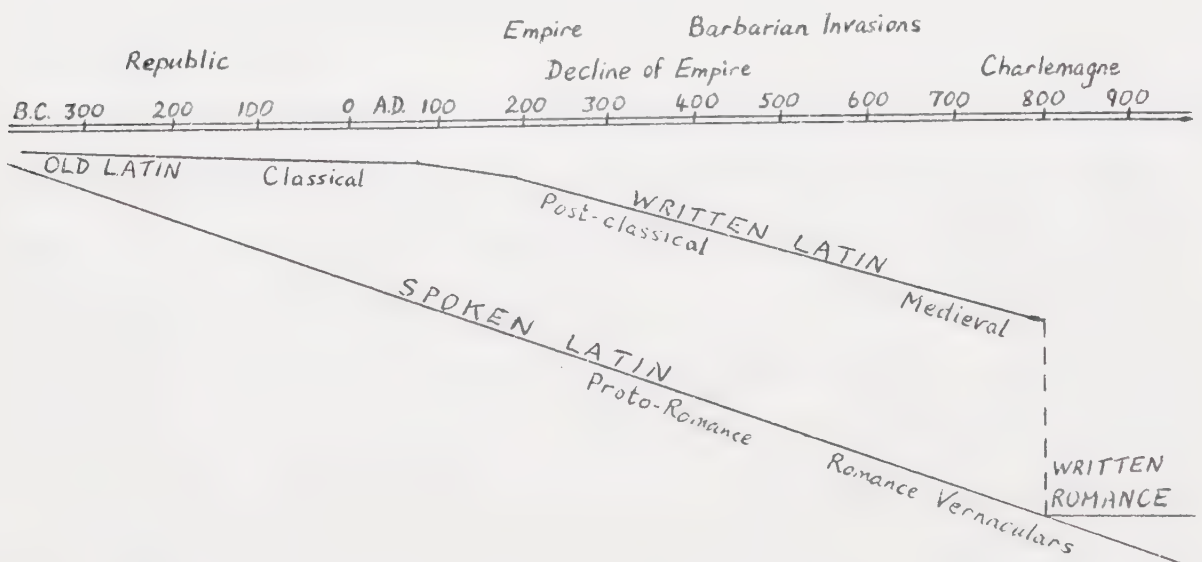 Empire Barbarian Invasions
Republic Decline of Empire Charlemagne
B.C. 300 200 100 0 A.D. 100 200 300 400 500 600 700 800 900
OLD LATIN Classical
WRITTEN LATIN
Post-classical
Medieval
SPOKEN LATIN
Proto-Romance
Romance Vernaculars
WRITTEN
ROMANCE